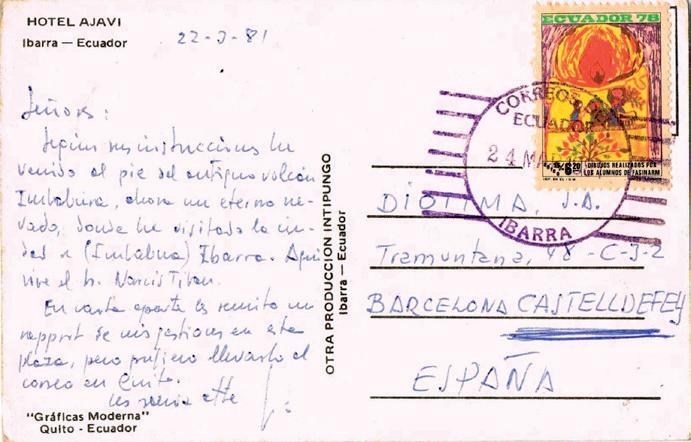 HOTEL AJAVI
Ibarra — Ecuador
22-3-81
Señores:
Según sus instrucciones he
venido al pie del antiguo volcán
Imbabura, ahora un eterno ne-
vado, donde he visitado la ciu-
dad de (Imbabura) Ibarra. Aquí
vive el h. Narcis
En carta aparte les remito un
rapport de mis gestiones en esta
plaza, pero prefiero llevarlo al
correo en Quito.
Les saluda atte
"Gráficas Moderna"
Quito - Ecuador
OTRA PRODUCCION INTIPUNGO
Ibarra — Ecuador
ECUADOR 78
S/. 6.20
DIBUJOS REALIZADOS POR
LOS ALUMNOS DE FASINARM
CORREOS
ECUADOR
24 MA
IBARRA
DIOTIMA, S.A.
Tramuntana, 48-C-3-2
BARCELONA CASTELLDEFEY
ESPAÑA